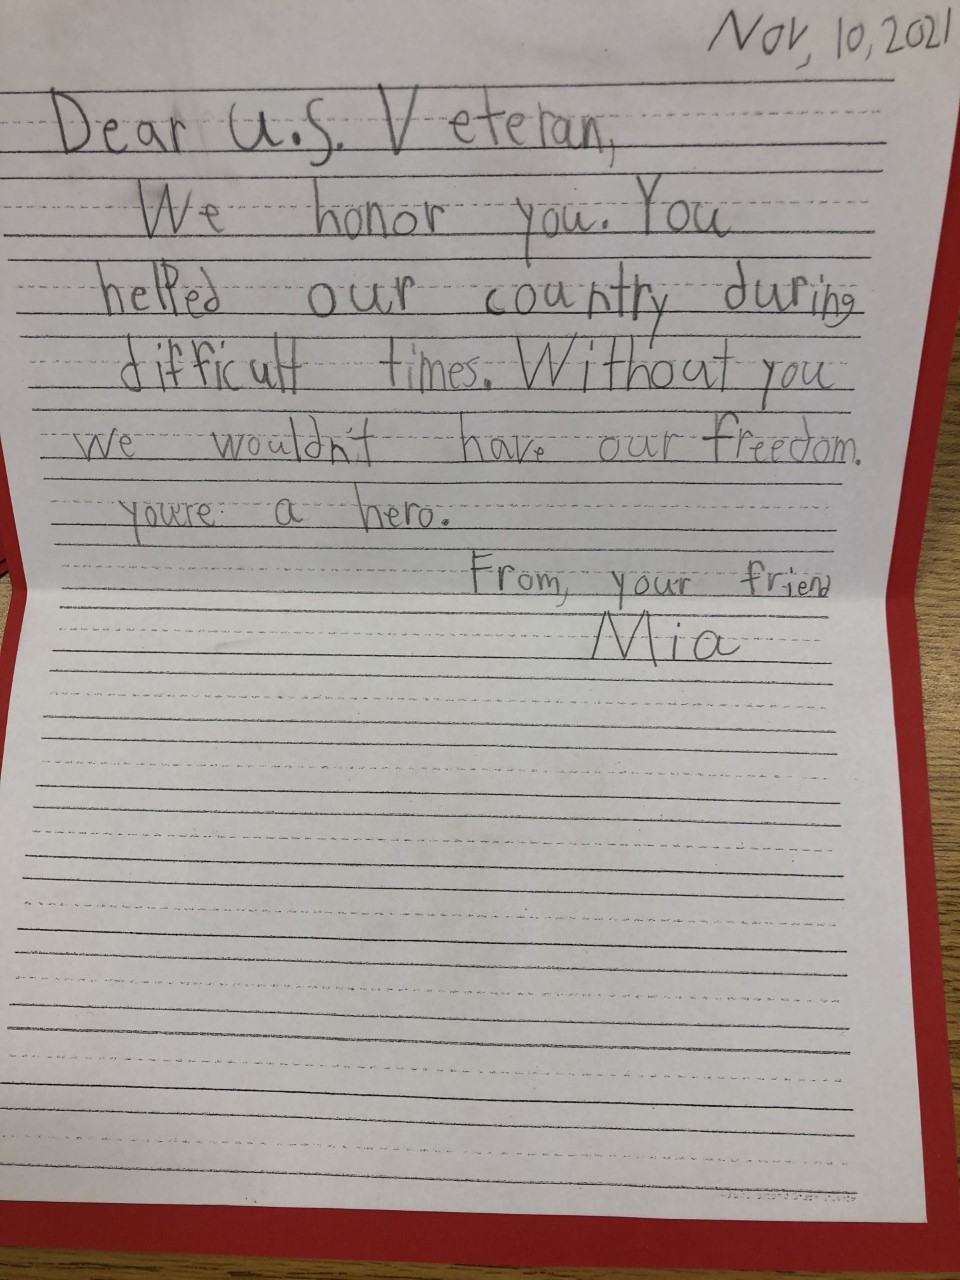 Nov, 10, 2021
Dear U.S. Veteran,
We honor you. You
helped our country during
difficult times. Without you
we wouldn't have our freedom.
you're a hero.
From, your friend
Mia